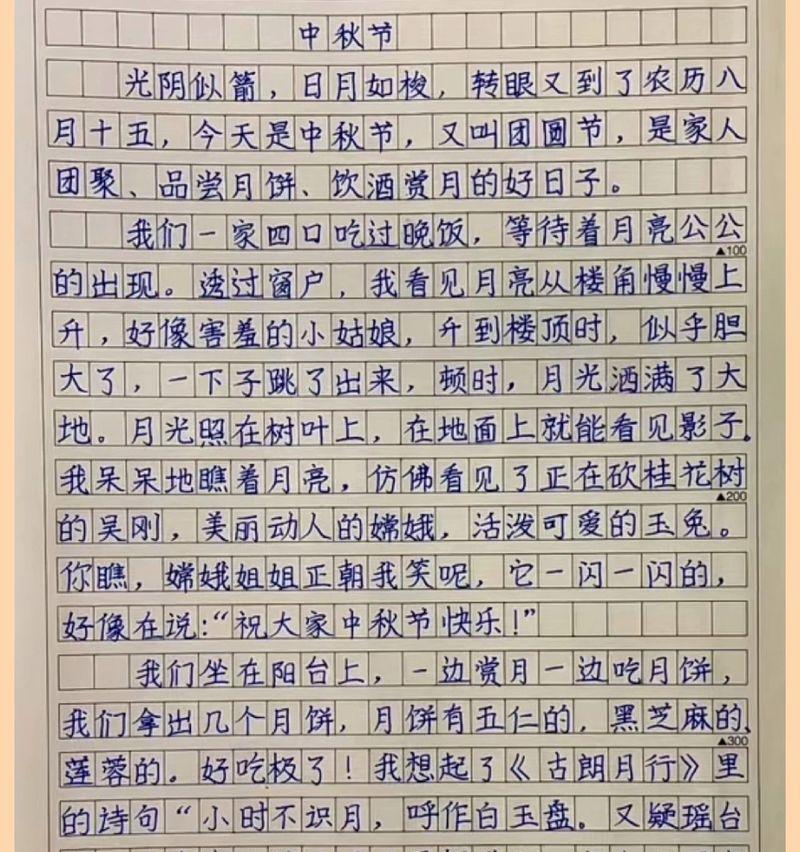 中秋节
光阴似箭，日月如梭，转眼又到了农历八
月十五，今天是中秋节，又叫团圆节，是家人
团聚、品尝月饼、饮酒赏月的好日子。
我们一家四口吃过晚饭，等待着月亮公公
▲100
的出现。透过窗户，我看见月亮从楼角慢慢上
升，好像害羞的小姑娘，升到楼顶时，似乎胆
大了，一下子跳了出来，顿时，月光洒满了大
地。月光照在树叶上，在地面上就能看见影子。
我呆呆地瞧着月亮，仿佛看见了正在砍桂花树
▲200
的吴刚，美丽动人的嫦娥，活泼可爱的玉兔。
你瞧，嫦娥姐姐正朝我笑呢，它一闪一闪的，
好像在说：“祝大家中秋节快乐！”
我们坐在阳台上，一边赏月一边吃月饼，
我们拿出几个月饼，月饼有五仁的，黑芝麻的、
▲300
莲蓉的。好吃极了！我想起了《古朗月行》里
的诗句“小时不识月，呼作白玉盘。又疑瑶台